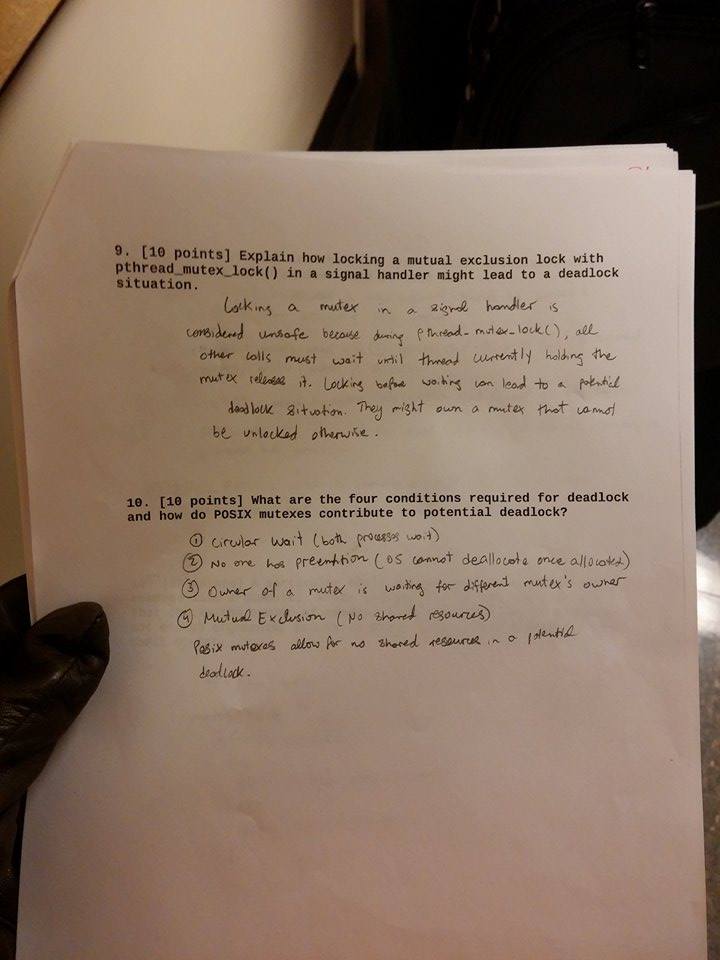 9. [10 points] Explain how locking a mutual exclusion lock with
pthread_mutex_lock() in a signal handler might lead to a deadlock
situation.
Locking a mutex in a signal handler is
considered unsafe because during pthread_mutex_lock(), all
other calls must wait until thread currently holding the
mutex releases it. Locking before waiting can lead to a potential
deadlock situation. They might own a mutex that cannot
be unlocked otherwise.
10. [10 points] What are the four conditions required for deadlock
and how do POSIX mutexes contribute to potential deadlock?
① Circular wait (both processes wait)
② No one has preemtion (OS cannot deallocate once allocated)
③ Owner of a mutex is waiting for different mutex's owner
④ Mutual Exclusion (No shared resources)
Posix mutexes allow for no shared resources in a potential
deadlock.